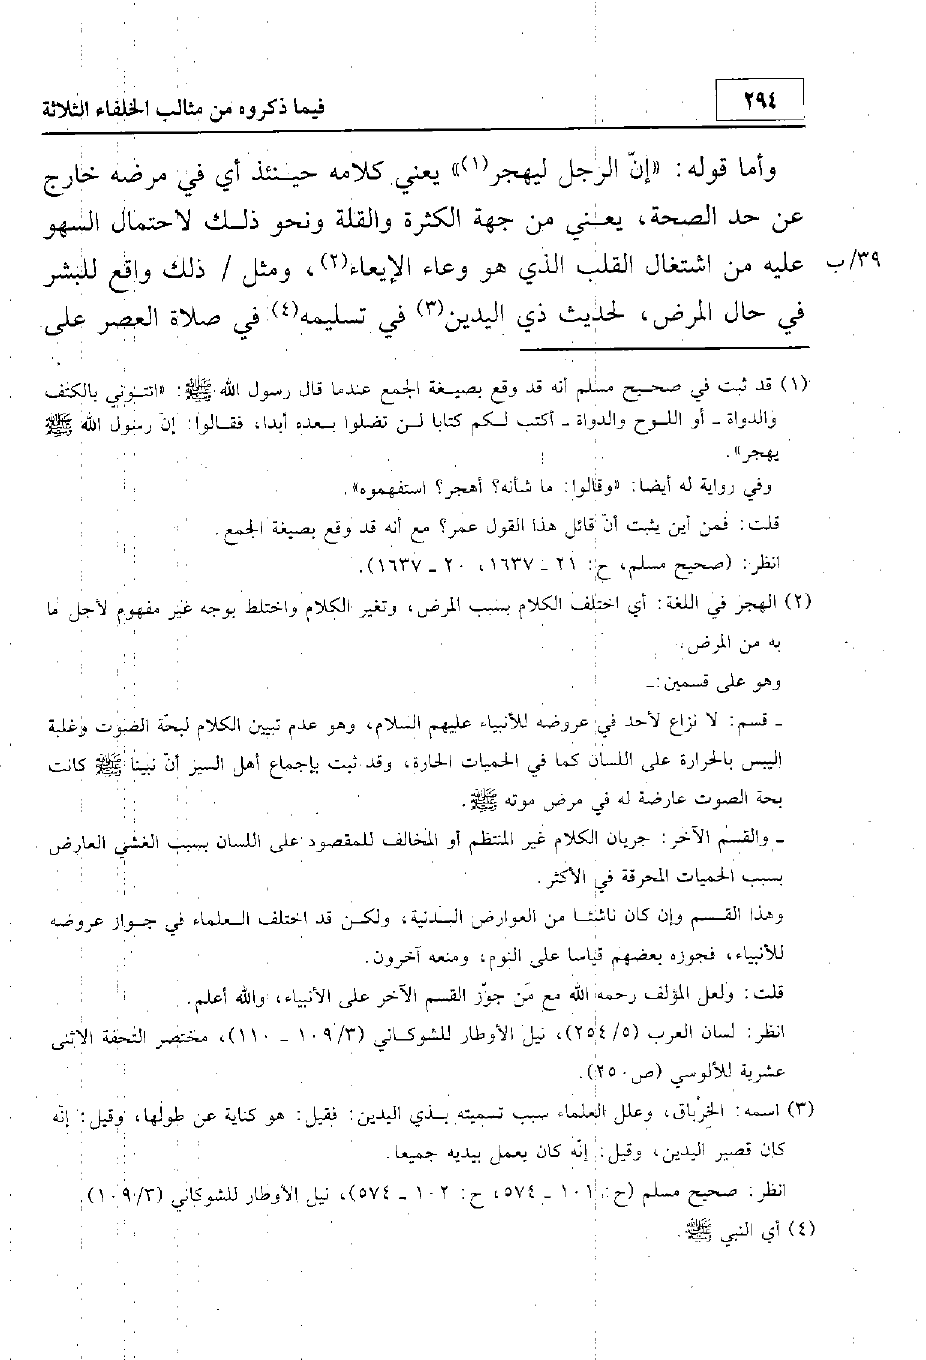 ٢٩٤
فيما ذكروه من مثالب الخلفاء الثلاثة
وأما قوله: «إنّ الرجل ليهجر(١)» يعني كلامه حينئذ أي في مرضه خارج
عن حد الصحة، يعني من جهة الكثرة والقلة ونحو ذلك لاحتمال السهو
عليه من اشتغال القلب الذي هو وعاء الإيعاء(٢)، ومثل / ذلك واقع للبشر
٣٩/ب
في حال المرض، لحديث ذي اليدين(٣) في تسليمه(٤) في صلاة العصر على
(١) قد ثبت في صحيح مسلم أنه قد وقع بصيغة الجمع عندما قال رسول الله ﷺ: «ائتوني بالكتف
والدواة ـ أو اللوح والدواة ـ أكتب لكم كتابا لن تضلوا بعده أبدا، فقالوا: إنّ رسول الله ﷺ
يهجر».
وفي رواية له أيضا: «وقالوا: ما شأنه؟ أهجر؟ استفهموه».
قلت: فمن أين يثبت أنّ قائل هذا القول عمر؟ مع أنه قد وقع بصيغة الجمع.
انظر: (صحيح مسلم، ح: ٢١ ـ ١٦٣٧، ٢٠ ـ ١٦٣٧).
(٢) الهجر في اللغة: أي اختلف الكلام بسبب المرض، وتغير الكلام واختلط بوجه غير مفهوم لأجل ما
به من المرض.
وهو على قسمين:ـ
ـ قسم: لا نزاع لأحد في عروضه للأنبياء عليهم السلام، وهو عدم تبيين الكلام لبحّة الصوت وغلبة
اليبس بالحرارة على اللسان كما في الحميات الحارة، وقد ثبت بإجماع أهل السير أنّ نبينا ﷺ كانت
بحة الصوت عارضة له في مرض موته ﷺ.
ـ والقسم الآخر: جريان الكلام غير المنتظم أو المخالف للمقصود على اللسان بسبب الغشي العارض
بسبب الحميات المحرقة في الأكثر.
وهذا القسم وإن كان ناشئا من العوارض البدنية، ولكن قد اختلف العلماء في جواز عروضه
للأنبياء، فجوزه بعضهم قياسا على النوم، ومنعه آخرون.
قلت: ولعل المؤلف رحمه الله مع مَن جوّز القسم الآخر على الأنبياء، والله أعلم.
انظر: لسان العرب (٢٥٤/٥)، نيل الأوطار للشوكاني (١٠٩/٣ ـ ١١٠)، مختصر التحفة الاثنى
عشرية للألوسي (ص٢٥٠).
(٣) اسمه: الخِرْباق، وعلل العلماء سبب تسميته بذي اليدين: فقيل: هو كناية عن طولها، وقيل: إنّه
كان قصير اليدين، وقيل: إنّه كان يعمل بيديه جميعا.
انظر: صحيح مسلم (ح: ١٠١ ـ ٥٧٤، ح: ١٠٢ ـ ٥٧٤)، نيل الأوطار للشوكاني (١٠٩/٣).
(٤) أي النبي ﷺ.